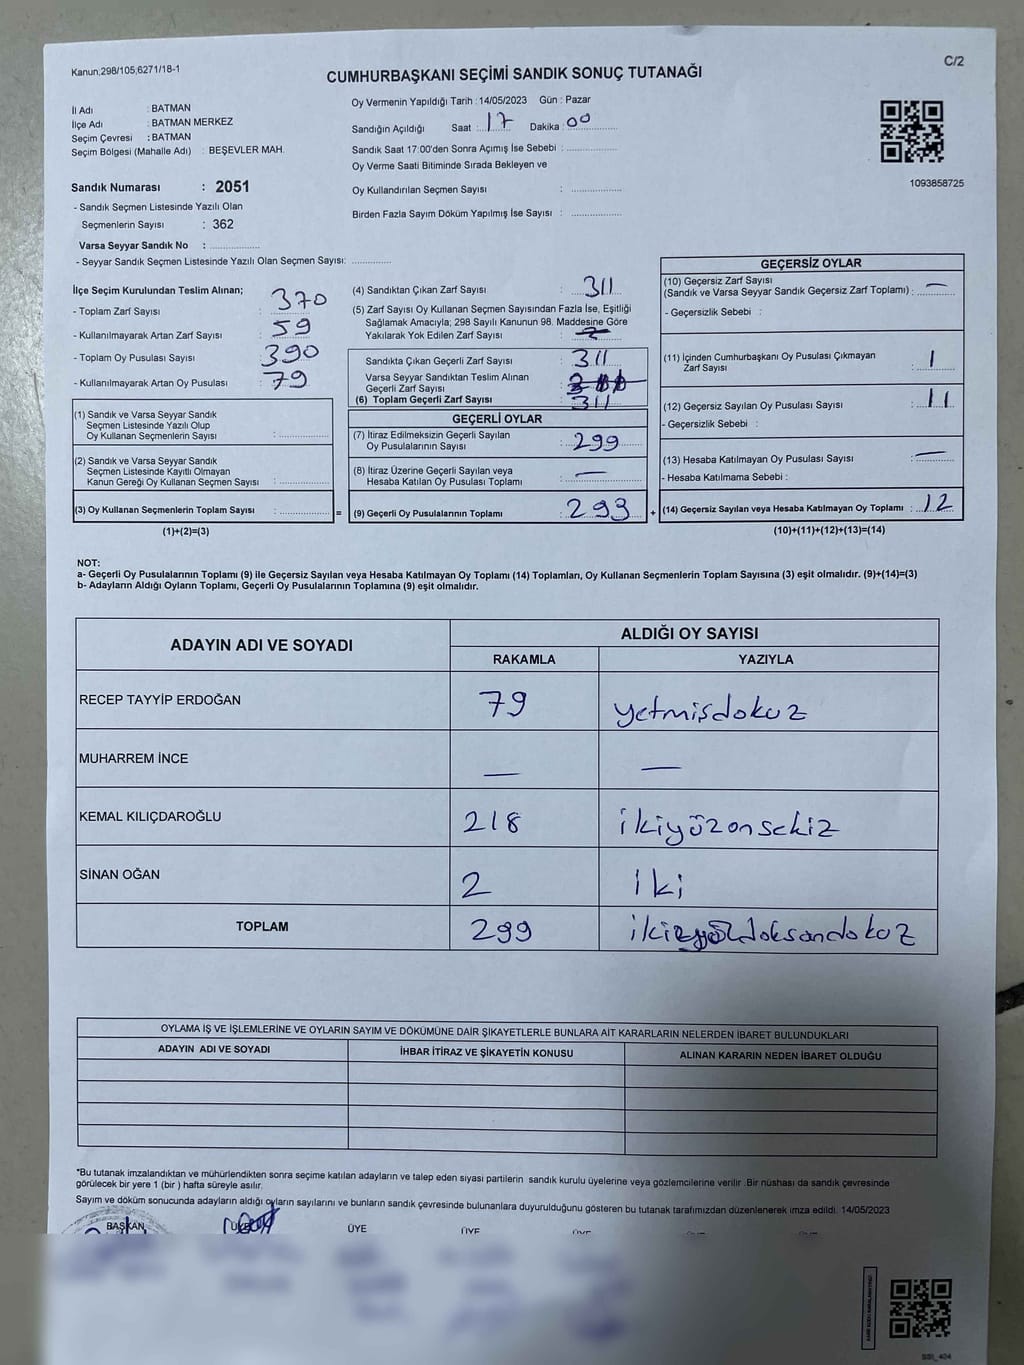 Kanun,298/105,6271/18-1
C/2
CUMHURBAŞKANI SEÇİMİ SANDIK SONUÇ TUTANAĞI
İl Adı : BATMAN
İlçe Adı : BATMAN MERKEZ
Seçim Çevresi : BATMAN
Seçim Bölgesi (Mahalle Adı) : BEŞEVLER MAH.
Sandık Numarası : 2051
- Sandık Seçmen Listesinde Yazılı Olan
Seçmenlerin Sayısı : 362
Varsa Seyyar Sandık No : ................
- Seyyar Sandık Seçmen Listesinde Yazılı Olan Seçmen Sayısı: .............
Oy Vermenin Yapıldığı Tarih : 14/05/2023 Gün : Pazar
Sandığın Açıldığı Saat : 17 Dakika : 00
Sandık Saat 17:00'den Sonra Açımış İse Sebebi : ................
Oy Verme Saati Bitiminde Sırada Bekleyen ve
Oy Kullandırılan Seçmen Sayısı : ................
Birden Fazla Sayım Döküm Yapılmış İse Sayısı : ................
1093858725
İlçe Seçim Kurulundan Teslim Alınan;
- Toplam Zarf Sayısı : 370
- Kullanılmayarak Artan Zarf Sayısı : 59
- Toplam Oy Pusulası Sayısı : 390
- Kullanılmayarak Artan Oy Pusulası : 79
(1) Sandık ve Varsa Seyyar Sandık
Seçmen Listesinde Yazılı Olup
Oy Kullanan Seçmenlerin Sayısı : ................
(2) Sandık ve Varsa Seyyar Sandık
Seçmen Listesinde Kayıtlı Olmayan
Kanun Gereği Oy Kullanan Seçmen Sayısı : ................
(3) Oy Kullanan Seçmenlerin Toplam Sayısı : ................ =
(1)+(2)=(3)
(4) Sandıktan Çıkan Zarf Sayısı : 311
(5) Zarf Sayısı Oy Kullanan Seçmen Sayısından Fazla İse, Eşitliği
Sağlamak Amacıyla; 298 Sayılı Kanunun 98. Maddesine Göre
Yakılarak Yok Edilen Zarf Sayısı :
Sandıkta Çıkan Geçerli Zarf Sayısı : 311
Varsa Seyyar Sandıktan Teslim Alınan
Geçerli Zarf Sayısı :
(6) Toplam Geçerli Zarf Sayısı : 311
GEÇERLİ OYLAR
(7) İtiraz Edilmeksizin Geçerli Sayılan
Oy Pusulalarının Sayısı : 299
(8) İtiraz Üzerine Geçerli Sayılan veya
Hesaba Katılan Oy Pusulası Toplamı : —
(9) Geçerli Oy Pusulalarının Toplamı : 293 +
GEÇERSİZ OYLAR
(10) Geçersiz Zarf Sayısı
(Sandık ve Varsa Seyyar Sandık Geçersiz Zarf Toplamı) : —
- Geçersizlik Sebebi :
(11) İçinden Cumhurbaşkanı Oy Pusulası Çıkmayan
Zarf Sayısı : 1
(12) Geçersiz Sayılan Oy Pusulası Sayısı : 11
- Geçersizlik Sebebi :
(13) Hesaba Katılmayan Oy Pusulası Sayısı : —
- Hesaba Katılmama Sebebi :
(14) Geçersiz Sayılan veya Hesaba Katılmayan Oy Toplamı : 12
(10)+(11)+(12)+(13)=(14)
NOT:
a- Geçerli Oy Pusulalarının Toplamı (9) ile Geçersiz Sayılan veya Hesaba Katılmayan Oy Toplamı (14) Toplamları, Oy Kullanan Seçmenlerin Toplam Sayısına (3) eşit olmalıdır. (9)+(14)=(3)
b- Adayların Aldığı Oyların Toplamı, Geçerli Oy Pusulalarının Toplamına (9) eşit olmalıdır.
ADAYIN ADI VE SOYADI ALDIĞI OY SAYISI
RAKAMLA YAZIYLA
RECEP TAYYİP ERDOĞAN 79 yetmişdokuz
MUHARREM İNCE — —
KEMAL KILIÇDAROĞLU 218 ikiyüzonsekiz
SİNAN OĞAN 2 iki
TOPLAM 299 ikiyüzdoksandokuz
OYLAMA İŞ VE İŞLEMLERİNE VE OYLARIN SAYIM VE DÖKÜMÜNE DAİR ŞİKAYETLERLE BUNLARA AİT KARARLARIN NELERDEN İBARET BULUNDUKLARI
ADAYIN ADI VE SOYADI İHBAR İTİRAZ VE ŞİKAYETİN KONUSU ALINAN KARARIN NEDEN İBARET OLDUĞU
*Bu tutanak imzalandıktan ve mühürlendikten sonra seçime katılan adayların ve talep eden siyasi partilerin sandık kurulu üyelerine veya gözlemcilerine verilir .Bir nüshası da sandık çevresinde
görülecek bir yere 1 (bir ) hafta süreyle asılır.
Sayım ve döküm sonucunda adayların aldığı oyların sayılarını ve bunların sandık çevresinde bulunanlara duyurulduğunu gösteren bu tutanak tarafımızdan düzenlenerek imza edildi. 14/05/2023
BAŞKAN ÜYE ÜYE ÜYE